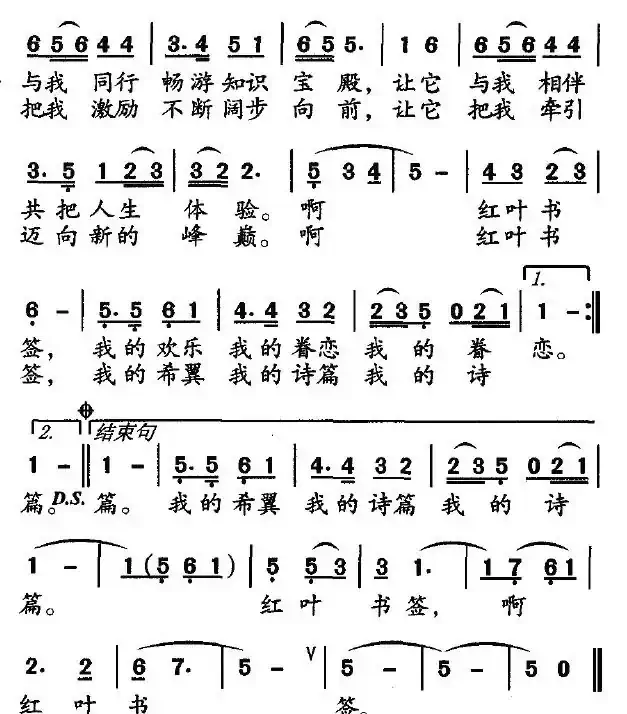 6 5 6 4 4 | 3. 4 5 1 | 6 5 5. | 1 6 | 6 5 6 4 4 |
与我 同行 畅游知识 宝 殿，让它 与我 相伴
把我 激励 不断阔步 向 前，让它 把我 牵引
3. 5 1 2 3 | 3 2 2. | 5 3 4 | 5 - | 4 3 2 3 |
共把人生 体 验。啊 红叶书
迈向新的 峰 巅。啊 红叶书
1.
6 - | 5. 5 6 1 | 4. 4 3 2 | 2 3 5 0 2 1 | 1 - :‖
签，我的欢乐 我的眷恋 我 的 眷 恋。
签，我的希翼 我的诗篇 我 的 诗
2. 结束句
1 - ‖ 1 - | 5. 5 6 1 | 4. 4 3 2 | 2 3 5 0 2 1 |
篇。D.S. 篇。 我的希翼 我的诗篇 我 的 诗
1 - | 1 (5 6 1) | 5 5 3 | 3 1. | 1 7 6 1 |
篇。 红 叶 书签， 啊
2. 2 | 6 7. | 5 - V | 5 - | 5 - | 5 0 ‖
红 叶 书 签。